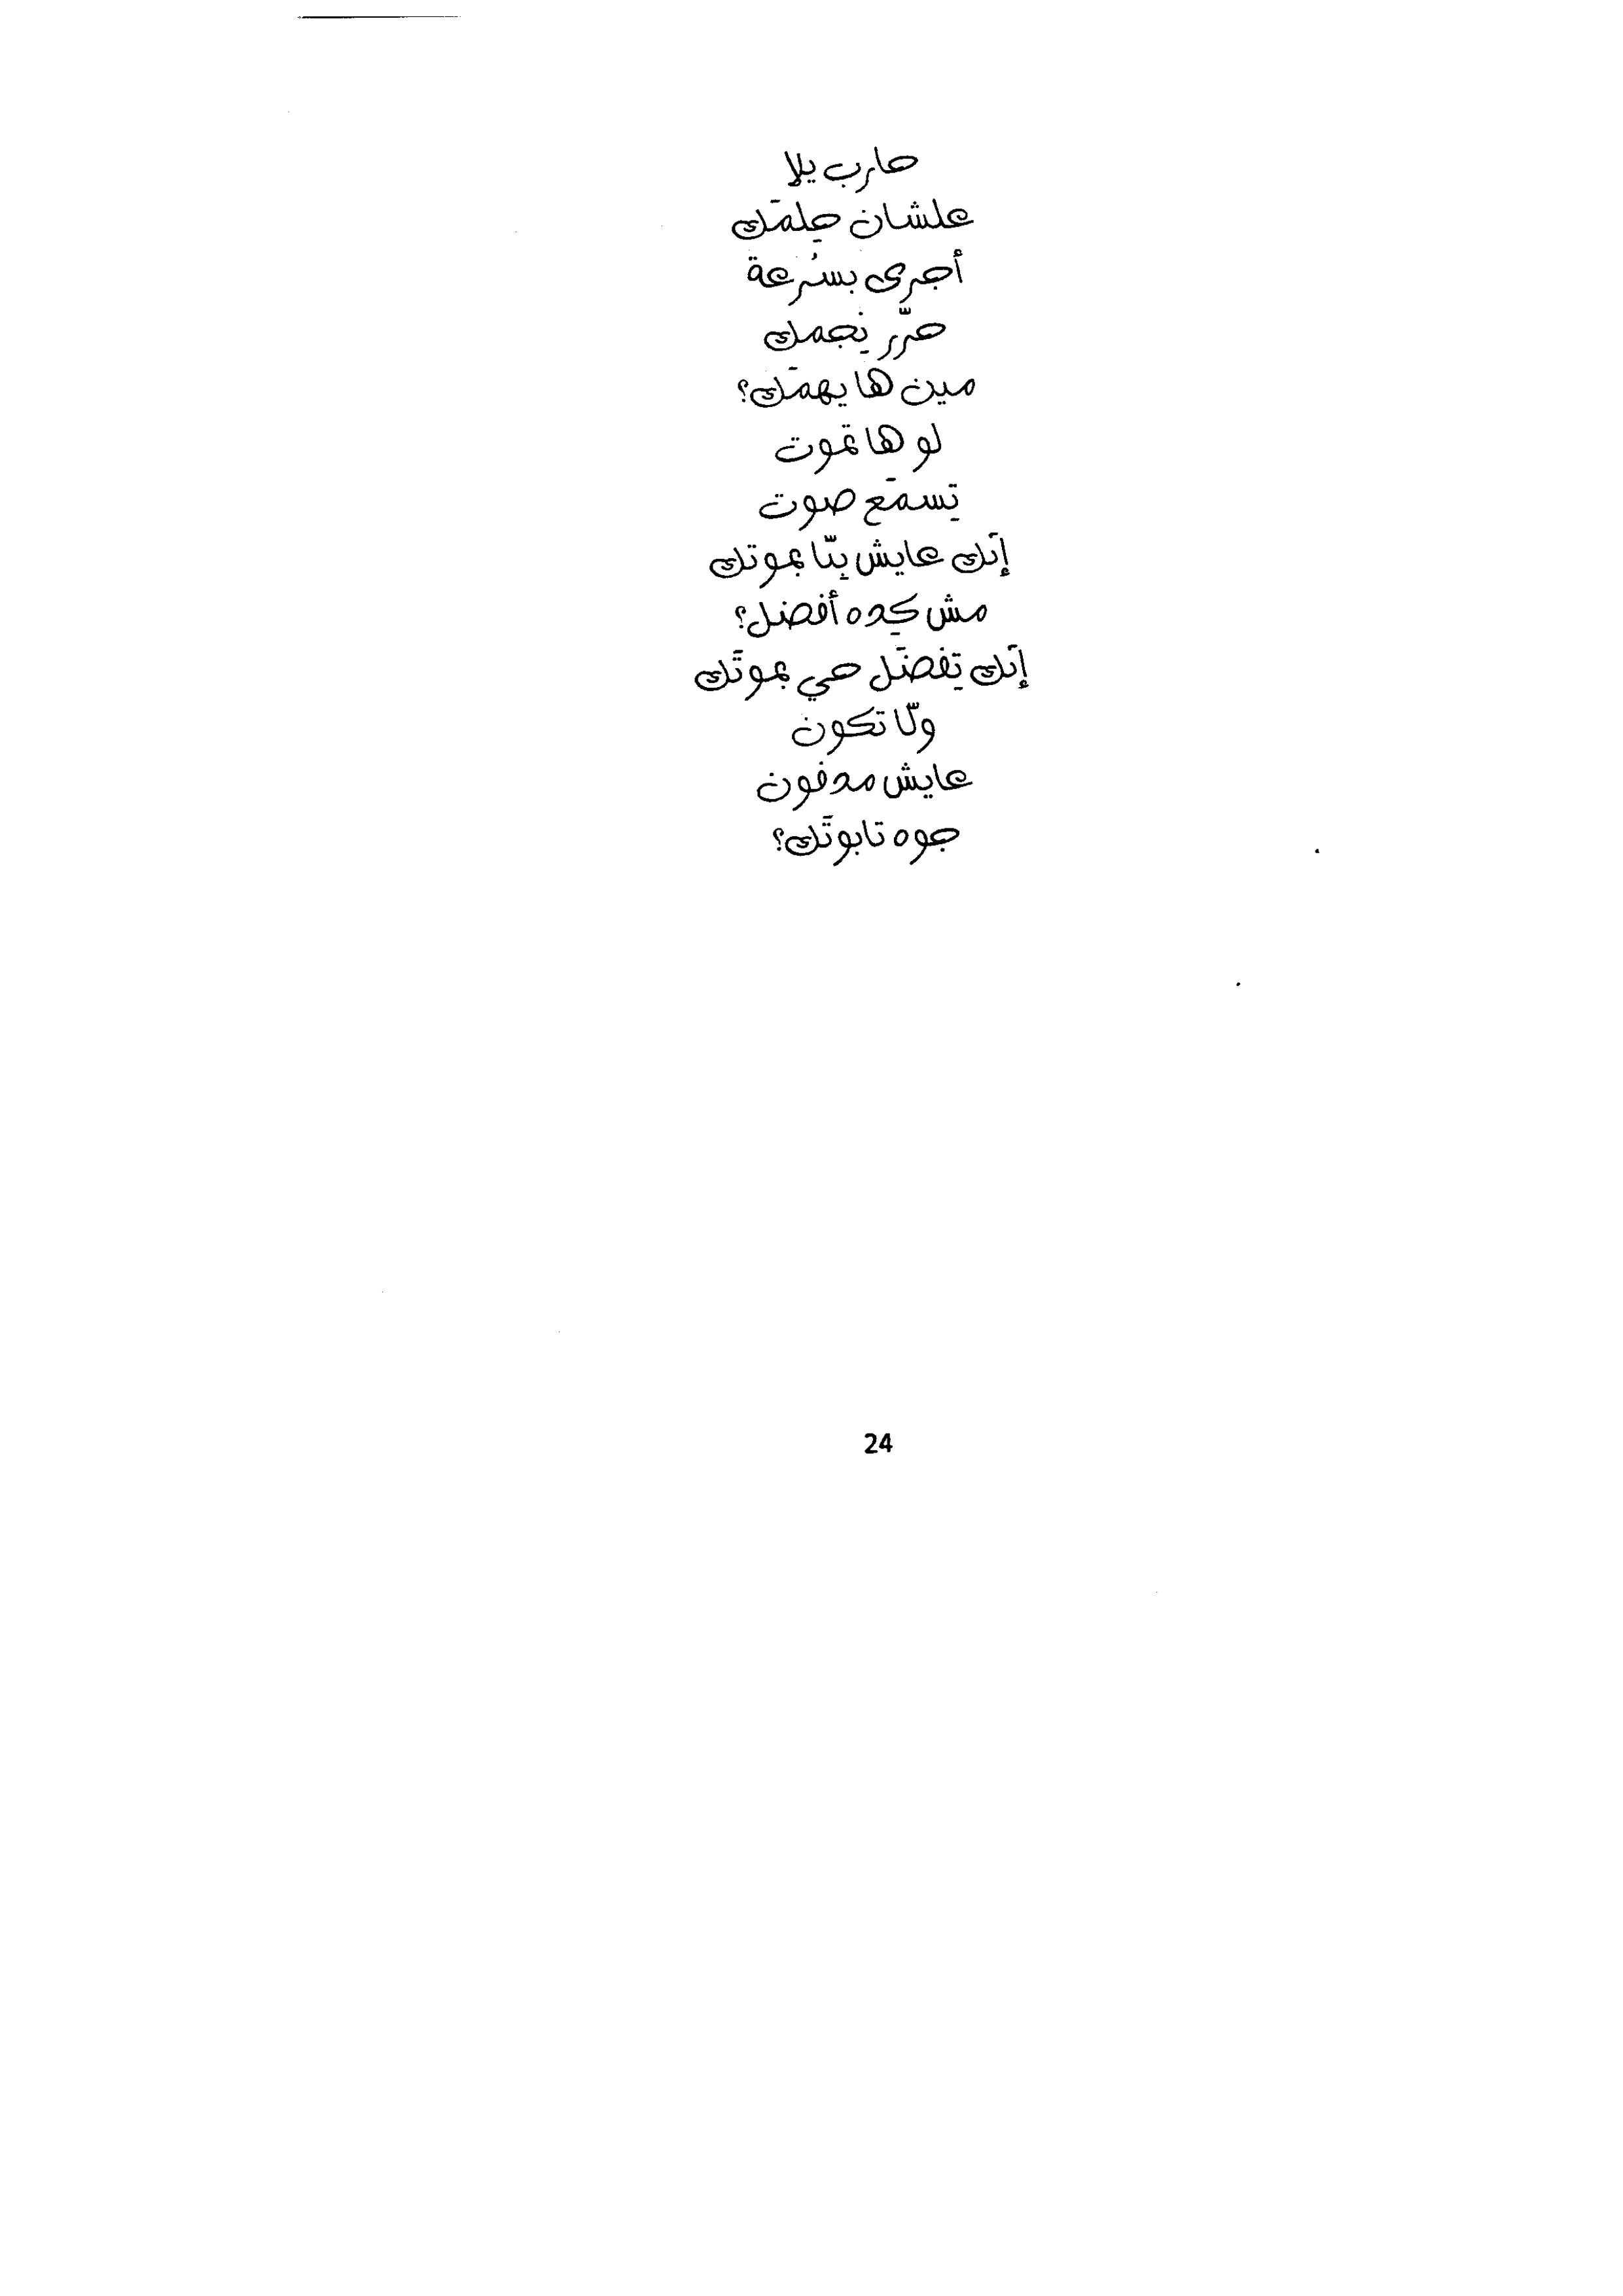 حارب يلا
علشان حِلمَك
أجرى بسُرعة
حرّر نِجمك
مين ها يهمَك؟
لو ها تموت
تِسمَع صوت
إنَك عايش بِتّا بموتك
مش كِده أفضل؟
إنَك تِفضَل حي بموتَك
ولّا تكون
عايش مدفون
جوه تابوتَك؟
24